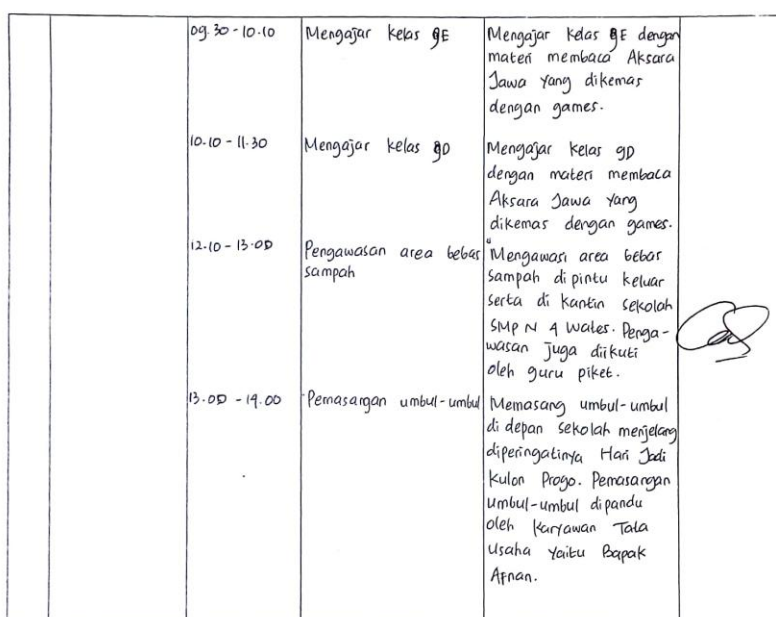 09.30 - 10.10
Mengajar kelas 9E
Mengajar kelas 9E dengan
materi membaca Aksara
Jawa yang dikemas
dengan games.
10.10 - 11.30
Mengajar kelas 9D
Mengajar kelas 9D
dengan materi membaca
Aksara Jawa yang
dikemas dengan games.
12.10 - 13.00
Pengawasan area bebas
sampah
Mengawasi area bebas
sampah di pintu keluar
serta di kantin sekolah
SMP N 4 Wates. Penga-
wasan juga diikuti
oleh guru piket.
13.00 - 14.00
Pemasangan umbul-umbul
Memasang umbul-umbul
di depan sekolah menjelang
diperingatinya Hari Jadi
Kulon Progo. Pemasangan
umbul-umbul dipandu
oleh Karyawan Tata
Usaha yaitu Bapak
Afnan.